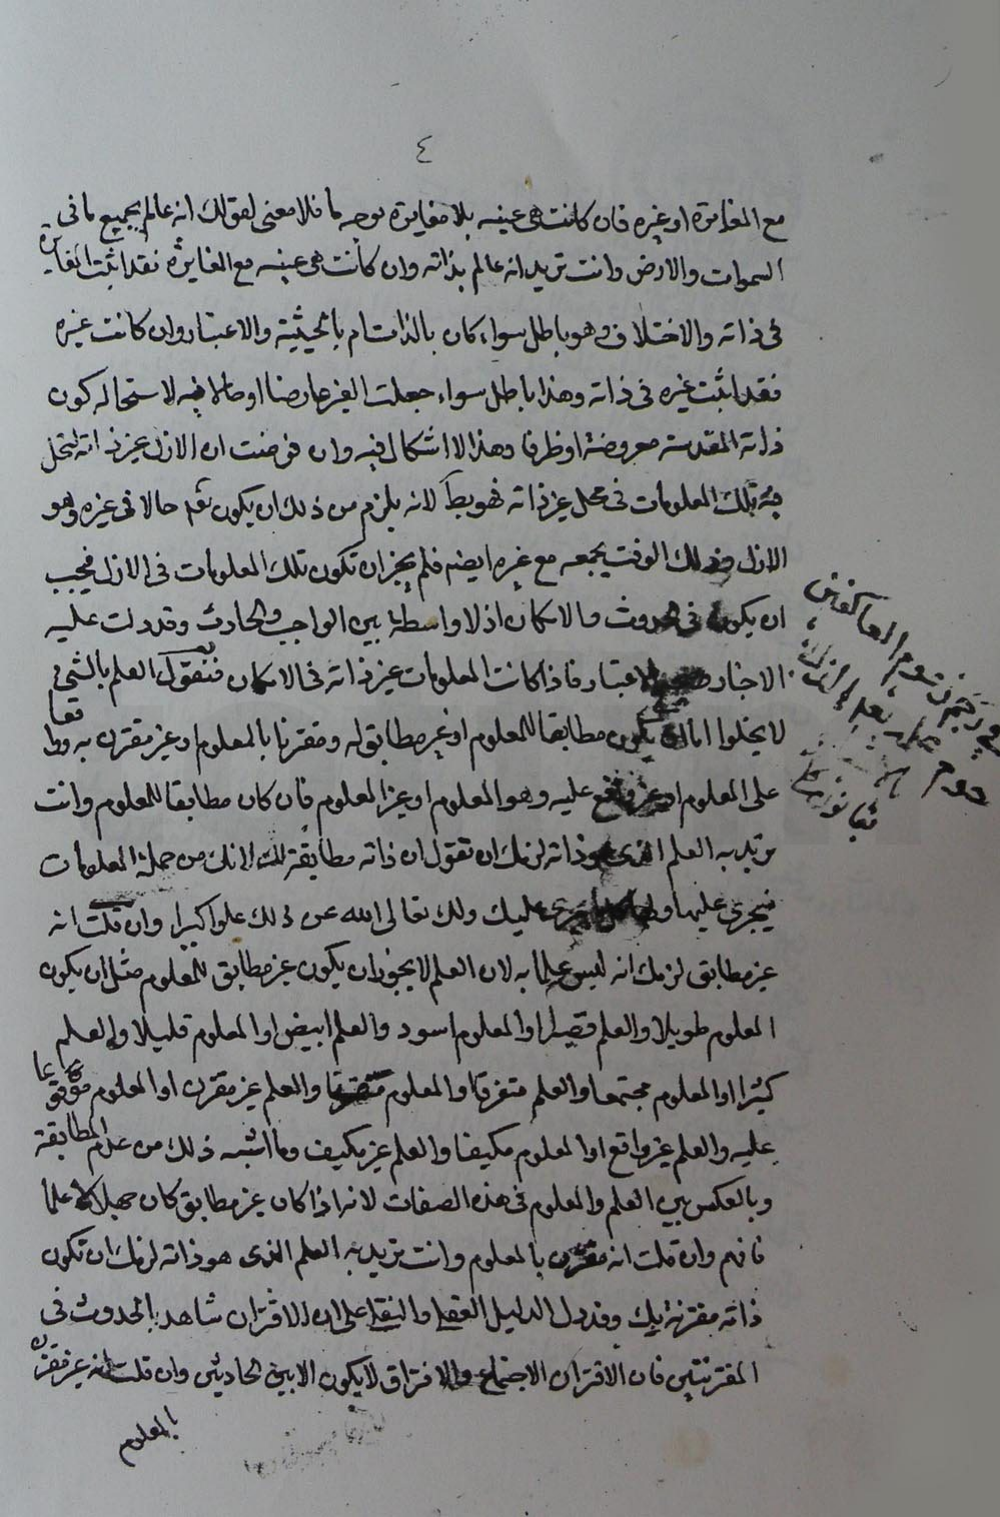 ٤
مع المغايرة او غيره فان كانت هي عينه بلا مغايرة بوجه ما فلا معنى لقولك انه عالم بجميع ما في
السموات والارض وانت تريد انه عالم بذاته وان كانت هي عينه مع المغايرة فقد اثبت المغايرة
في ذاته والاختلاف وهو باطل سواء كان بالذات ام بالحيثية والاعتبار وان كانت غيره
فقد اثبت غيره في ذاته وهذا باطل سواء جعلت الغير عارضا او حالا فيه لاستحالة كون
ذاته المقدسة معروضة او ظرفا وهذا لا اشكال فيه وان فرضت ان الازل غير ذاته لتحل
فيه تلك المعلومات في محل غير ذاته فهو بط لانه يلزم من ذلك ان يكون تعه حالا في غيره وهو
الازل وذلك الوقت يجمعه مع غيره ايضه فلم يجز ان تكون تلك المعلومات في الازل فيجب
ان يكون في الحدوث والامكان اذ لا واسطة بين الواجب والحادث وقد دلت عليه
الاخبار والاعتبار فاذا كانت المعلومات غير ذاته في الامكان فنقول العلم بالشيء
لا يخلوا اما ان يكون مطابقا للمعلوم او غير مطابق له ومقترنا بالمعلوم او غير مقترن به وواقعا
على المعلوم او غير واقع عليه وهو المعلوم او غير المعلوم فان كان مطابقا للمعلوم وانت
تريد به العلم الذي هو ذاته لزمك ان تقول ان ذاته مطابقة لك لانك من جملة المعلومات
فيجري عليها ما يجري عليك ولك تعالى الله عن ذلك علوا كبيرا وان قلت انه
غير مطابق لزمك انه ليس علما به لان العلم لا يجوز ان يكون غير مطابق للمعلوم مثل ان يكون
المعلوم طويلا والعلم قصيرا او المعلوم اسود والعلم ابيض او المعلوم قليلا والعلم
كثيرا او المعلوم مجتمعا والعلم متفرقا والمعلوم مقترنا والعلم غير مقترن او المعلوم موقوعا
عليه والعلم غير واقع او المعلوم مكيفا والعلم غير مكيف وما اشبه ذلك من عدم المطابقة
وبالعكس بين العلم والمعلوم في هذه الصفات لانه اذا كان غير مطابق كان جهلا لا علما
فافهم وان قلت انه مقترن بالمعلوم وانت تريد به العلم الذي هو ذاته لزمك ان تكون
ذاته مقترنة بك وقد دل الدليل العقلي والنقلي على ان الاقتران شاهد بالحدوث في
المقترنين فان الاقتران الاجتماع والافتراق لا يكون الا بين الحادثين وان قلت انه غير مقترن
بالمعلوم